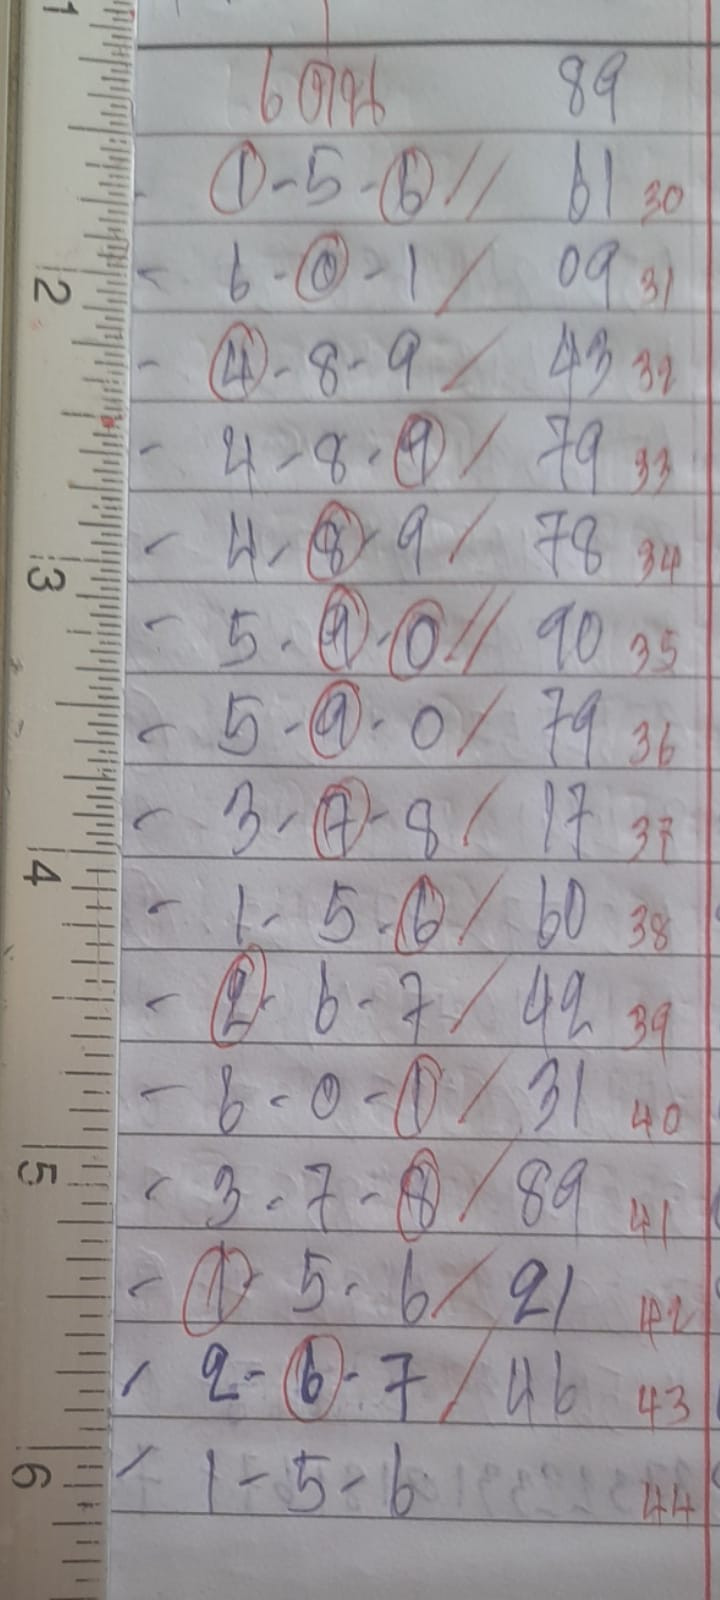 89
1-5-6 // 61 30
6-0-1 / 09 31
4-8-9 / 43 32
4-8-9 / 79 33
4-8-9 / 78 34
5-9-0 // 90 35
5-9-0 / 79 36
3-7-8 / 17 37
1-5-6 / 60 38
2-6-7 / 42 39
6-0-1 / 31 40
3-7-8 / 89 41
1-5-6 / 21 42
2-6-7 / 46 43
1-5-6 44
1
2
3
4
5
6